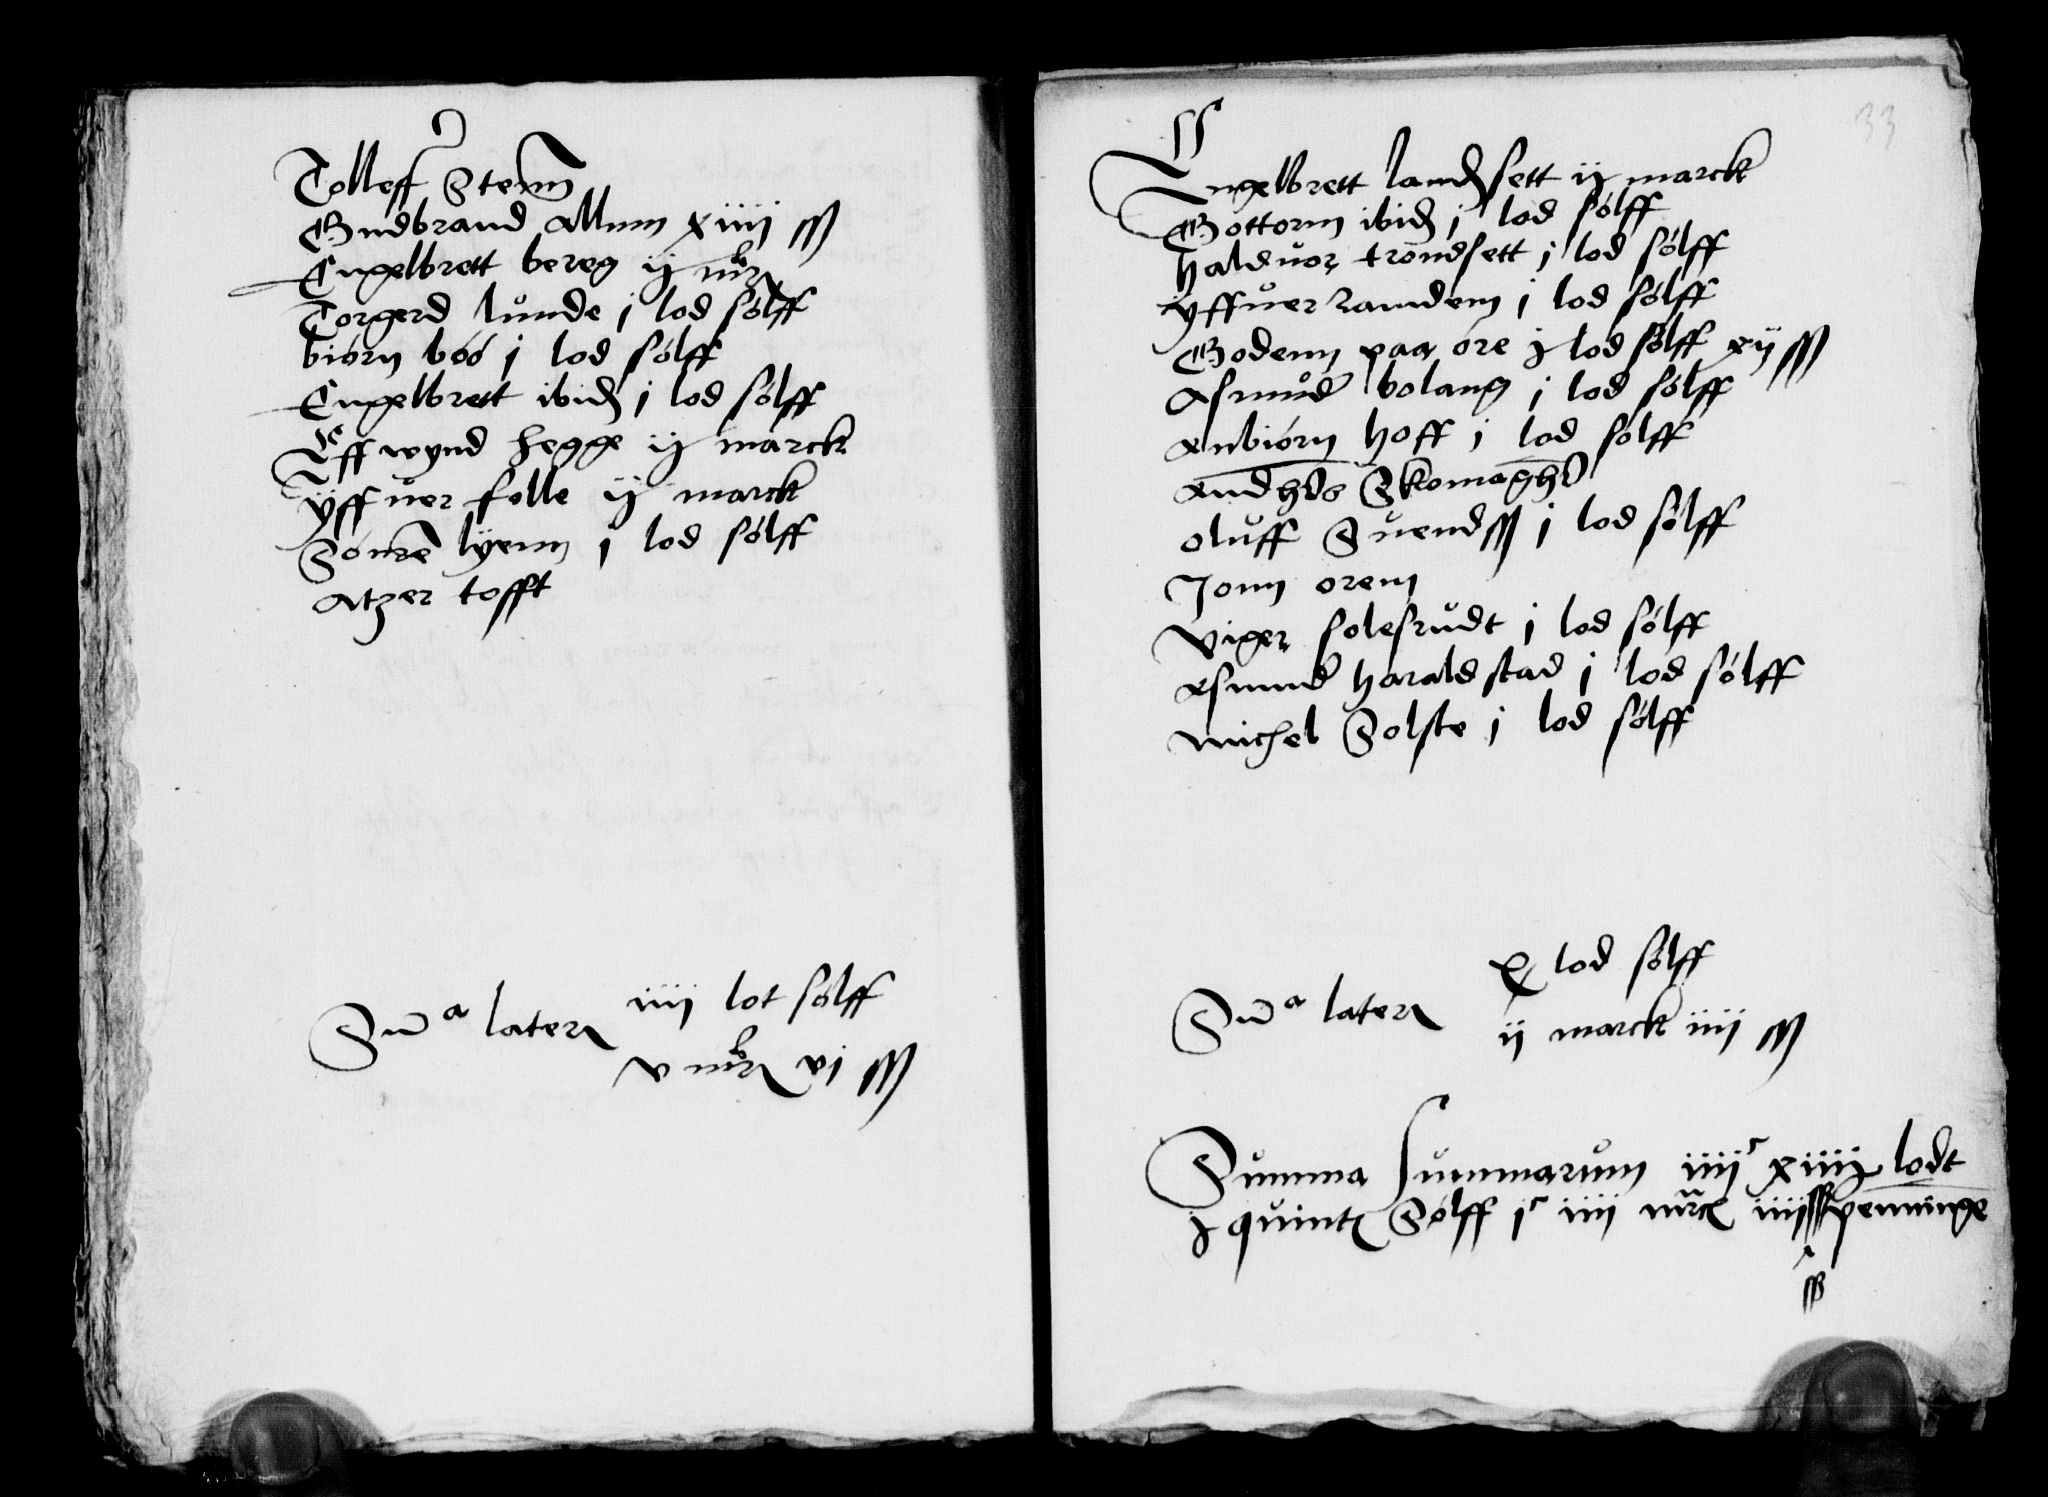 Tolleff Stenn
Gudbrand Allum xiiii ß
Engelbrett bereg ij mrk
Torgerd lunde j lod sølff
biørn bøø j lod sølff
Engelbrett ibid j lod sølff
Effwynd hegge ij marck
yffuer folle ij marck
Sønre lyenn j lod sølff
Atzer tofft
Sum̄a later
iiij lot sølff
v mrk vj ß
33
Engelbrett landsett ij marck
Gottorm ibid j lod sølff
haldvor trondsett j lod sølff
yffuer Ramdem j lod sølff
Godenn paa øre j lod sølff xij ß
Asmund bolang j lod sølff
Anbiørn hoff j lod sølff
Skomagher
oluff Suendß j lod sølff
Jonn orem
Viger solesrudt j lod sølff
Asmund haraldstad j lod sølff
michel Solste j lod sølff
Sum̄a later
x lod sølff
ij marck iiij ß
Summa Summarum iiijc xiiij lodt
j quint Sølff jc iiij mrck iiij ß penninge
ß